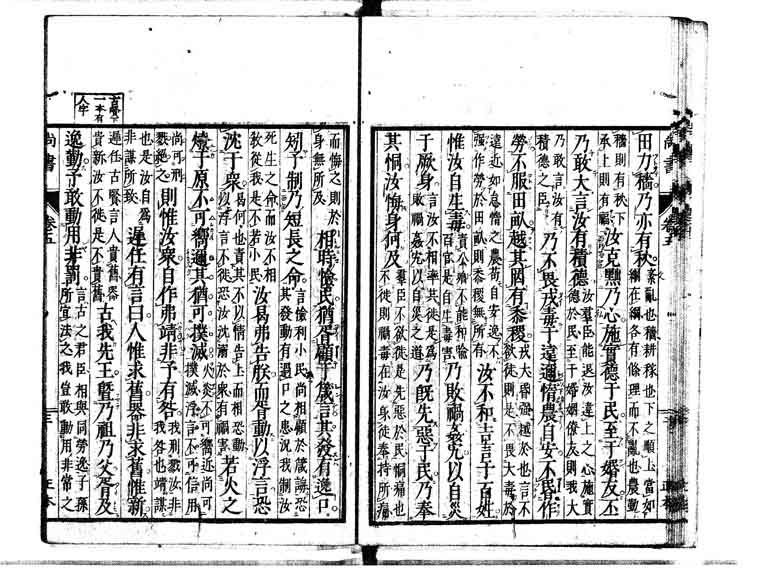 田力穡乃亦有秋紊亂也穡耕稼也下之順上當如網在綱各有條理而不亂也農勤
穡則有秋下承上則有福汝克黜乃心施實德于民至于婚友丕
乃敢大言汝有積德汝羣臣能退汝違上之心施實德於民至于婚姻僚友則我大
乃敢言汝有積德之臣乃不畏戎毒于遠邇惰農自安不昬作
勞不服田畝越其罔有黍稷戎大昬強越於也言不欲徙則是不畏大毒於
遠近如怠惰之農苟自安逸不強作勞於田畝則黍稷無所有汝不和吉言于百姓
惟汝自生毒責公卿不能和喻百官是自生毒害乃敗禍姦宄以自災
于厥身言汝不相率共徙是爲敗禍姦宄以自災之道乃既先惡于民乃奉
其恫汝悔身何及羣臣不欲徙是先惡於民恫痛也不徙則禍毒在汝身徒奉持所痛
而悔之則於身無所及相時憸民猶胥顧于箴言其發有逸口
矧予制乃短長之命言憸利小民尚相顧於箴誨恐其發動有過口之患況我制汝
死生之命而汝不相教從我是不若小民汝曷弗告朕而胥動以浮言恐
沈于衆曷何也責其不以情告上而相恐動以浮言不徙恐汝沈溺於衆有禍害若火之
燎于原不可嚮邇其猶可撲滅火炎不可嚮近尚可撲滅浮言不可信用
尚可刑戮絶之則惟汝衆自作弗靖非予有咎我刑戮汝非我咎也靖謀
也是汝自爲非謀所致遲任有言曰人惟求舊器非求舊惟新
遲任古賢言人貴舊器貴新汝不徙是不貴舊古我先王曁乃祖乃父胥及
逸勤予敢動用非罰言古之君臣相與同勞逸子孫所宜法之我豈敢動用非常之
言下一本有人字
尚書 卷五 三 正本